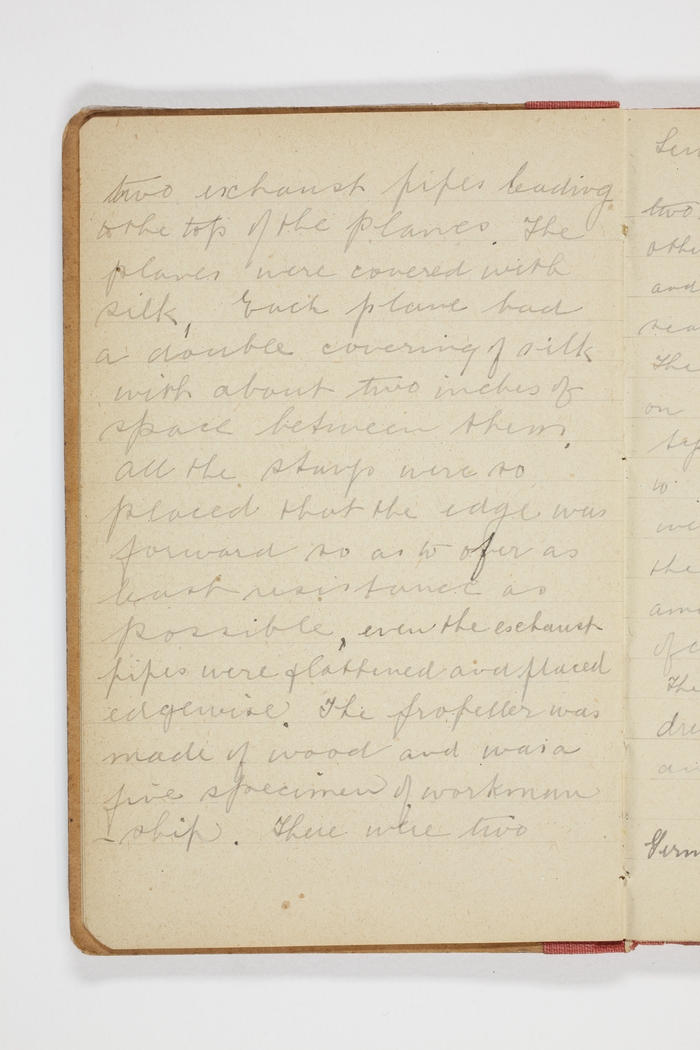 two exhaust pipes leading
to the top of the planes. The
planes were covered with
silk, Each plane had
a double covering of silk
with about two inches of
space between them.
all the stays were so
placed that the edge was
forward so as to ofer as
least resistance as
possible, even the exhaust
pipes were flattened and placed
edgewise. The propeller was
made of wood and was a
fine specimen of workman
-ship. There were two
two
and
The
on
to
the
The